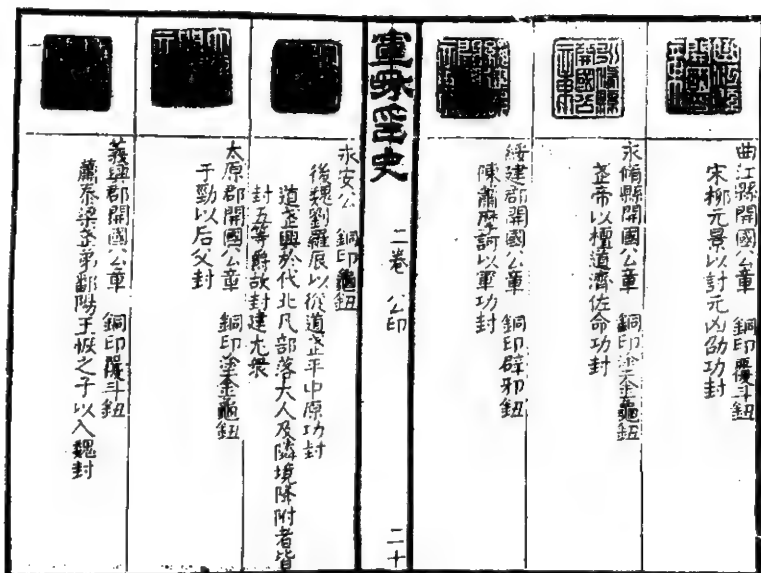 曲江縣開國公章　銅印覆斗鈕
宋柳元景以討元凶劭功封
永脩縣開國公章　銅印塗金龜鈕
武帝以檀道濟佐命功封
綏建郡開國公章　銅印辟邪鈕
陳蕭摩訶以軍功封
二卷　公印
二十
永安公　銅印龜鈕
後魏劉羅辰以從道武平中原功封
道武興於代北凡部落大人及隣境降附者皆
封五等爵故封建尤衆
太原郡開國公章　銅印塗金龜鈕
于勁以后父封
義興郡開國公章　銅印覆斗鈕
蕭泰梁武弟鄱陽王恢之子以入魏封